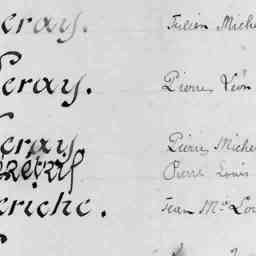 eray. Julien Miche
eray. Pierre Léon
eray Pierre Miche
Pierre Louis
eriche. Jean M Lou